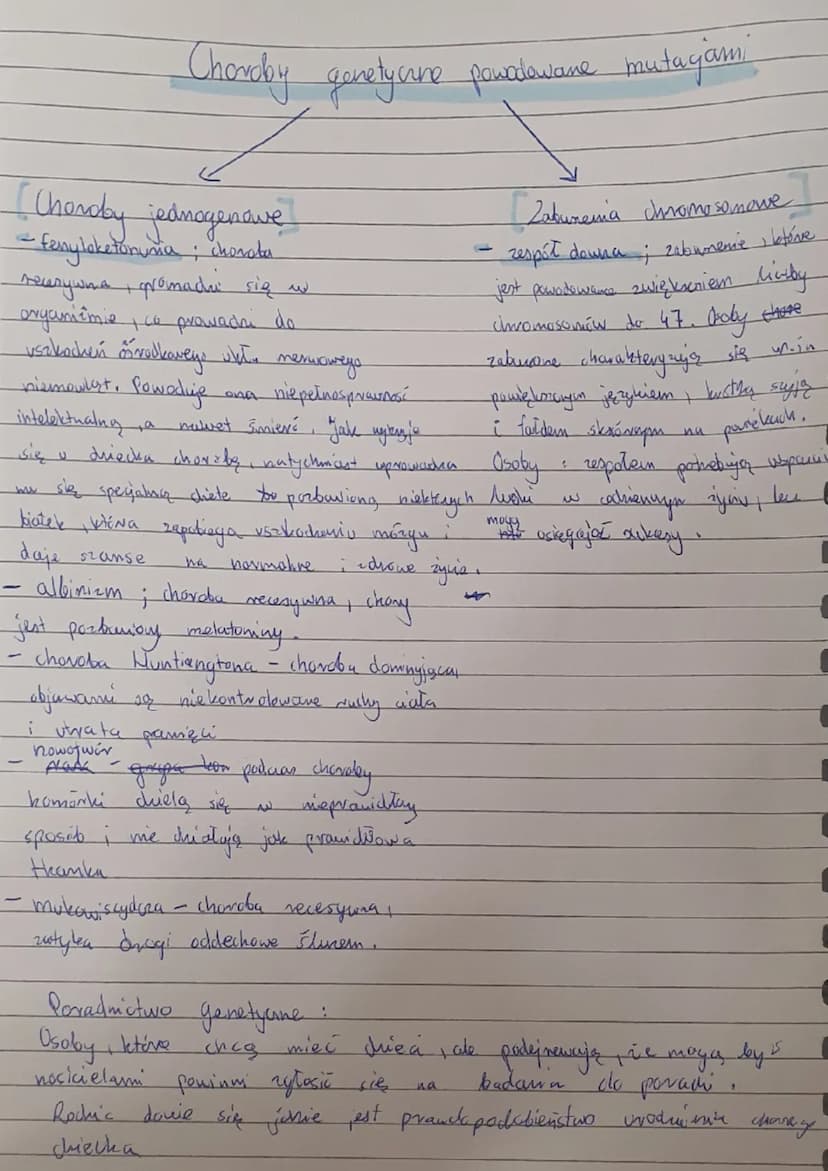 Choroby genetyczne powodowane mutacjami
[Choroby jednogenowe]
- fenyloketonuria ; choroba
recesywna, gromadzi się w
organizmie, co prowadzi do
uszkodzeń ośrodkowego ukł. nerwowego
niemowląt. Powoduje ona niepełnosprawność
intelektualną, a nawet śmierć. Jak wykryje
się u dziecka chorobę, natychmiast wprowadza
mu się specjalną dietę pozbawioną niektórych
białek, która zapobiega uszkodzeniu mózgu i
daje szanse na normalne i zdrowe życie.
- albinizm ; choroba recesywna, chory
jest pozbawiony melatoniny.
- choroba Huntingtona - choroba dominująca,
objawami są niekontrolowane ruchy ciała
i utrata pamięci
- nowotwór - podczas choroby
komórki dzielą się w nieprawidłowy
sposób i nie działają jak prawidłowa
tkanka
- mukowiscydoza - choroba recesywna,
zatyka drogi oddechowe śluzem.
[Zaburzenia chromosomowe]
- zespół downa ; zaburzenie, które
jest powodowane zwiększeniem liczby
chromosomów do 47. Osoby chore
zaburzone charakteryzują się m.in
powiększonym językiem, krótką szyją
i fałdem skórnym na powiekach.
Osoby z zespołem potrzebują wsparcia
ludzi w codziennym życiu, lecz
mogą osiągać sukcesy.
Poradnictwo genetyczne :
Osoby, które chcą mieć dzieci, ale podejrzewają, że mogą być
nosicielami powinni zgłosić się na badania do poradni.
Rodzic dowie się jakie jest prawdopodobieństwo urodzenia chorego
dziecka